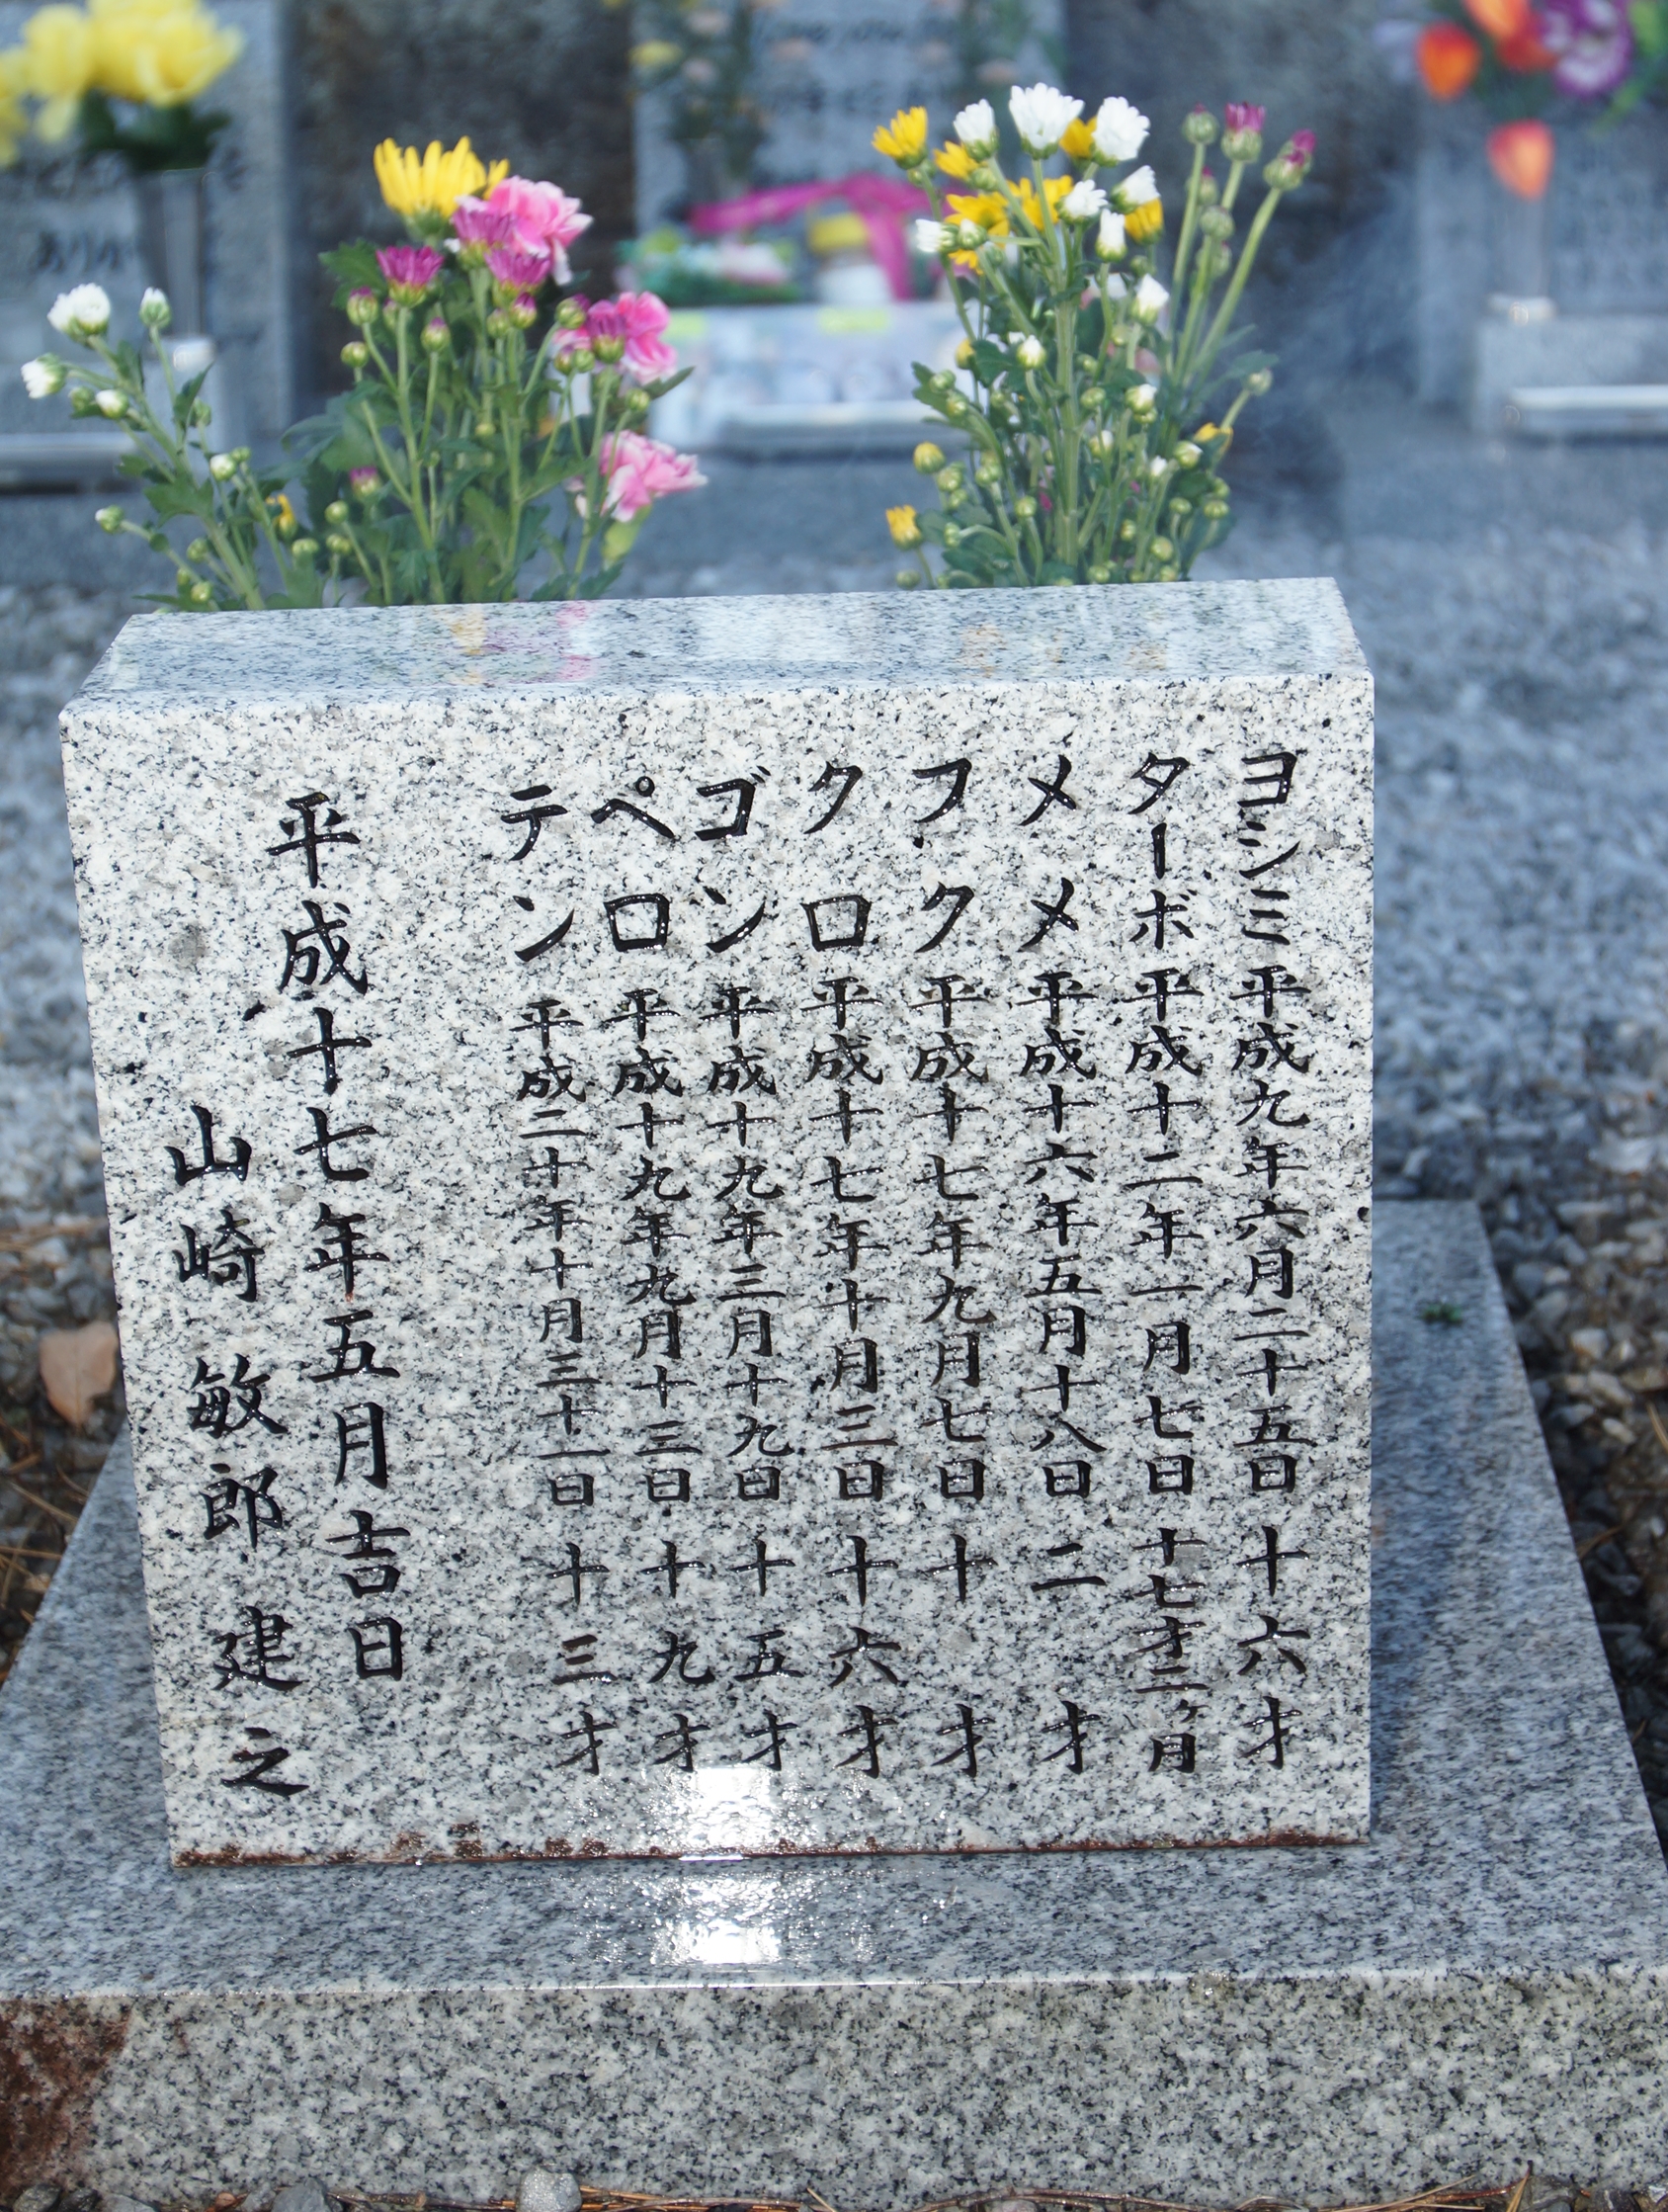 ヨシミ 平成九年六月二十五日 十六才
ターボ 平成十二年一月七日 十七才二ヶ月
メメ 平成十六年五月十八日 二才
フク 平成十七年九月七日 十才
クロ 平成十七年十月三日 十六才
ゴン 平成十九年三月十九日 十五才
ペロ 平成十九年九月十三日 十九才
テン 平成二十年十月三十一日 十三才
平成十七年五月吉日
山崎敏郎建之